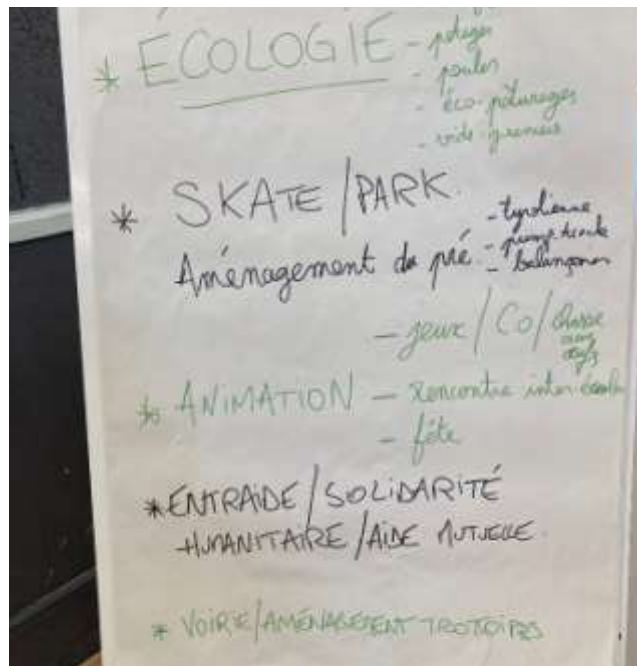 * ÉCOLOGIE - potager
- poules
- éco-pâturages
- vide-greniers
* SKATE/PARK
- tyrolienne
Aménagement du pré - pump track
- balançoires
- jeux / CO / chasse aux œufs
* ANIMATION - Rencontre inter écoles
- fête
* ENTRAIDE/SOLIDARITÉ
HUMANITAIRE/AIDE MUTUELLE
* VOIRIE/AMÉNAGEMENT TROTOIRS